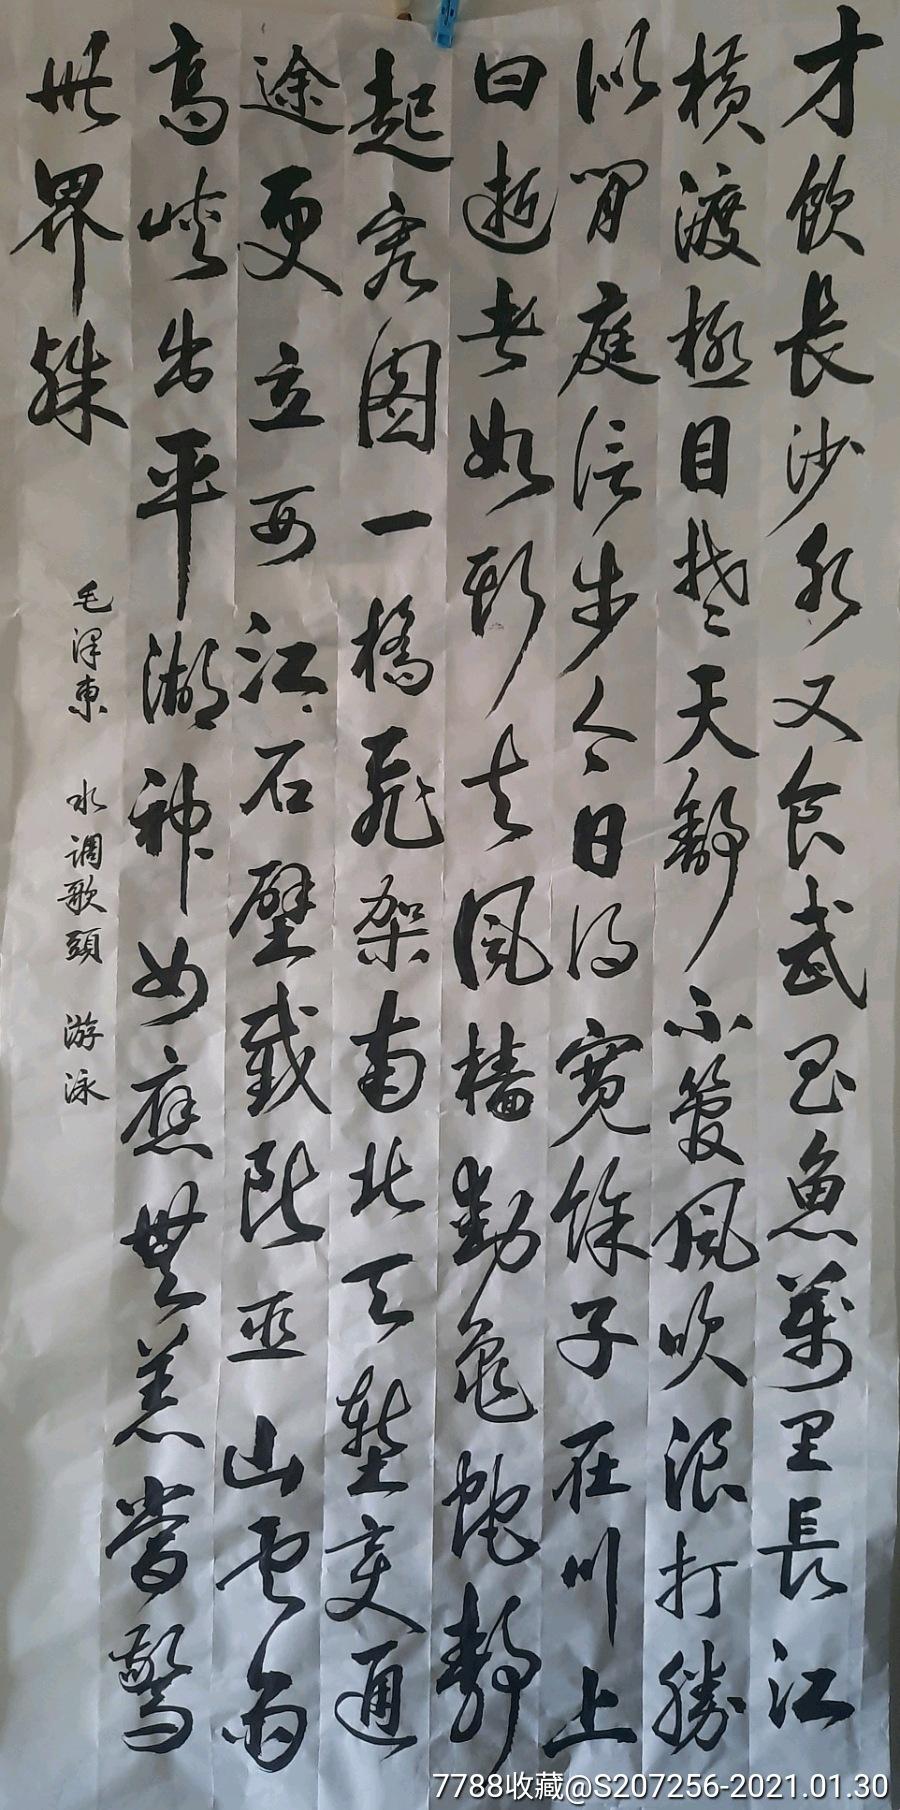 才飲長沙水又食武昌魚萬里長江
橫渡極目楚天舒不管風吹浪打勝
似閒庭信步今日得寬餘子在川上
曰逝者如斯夫風檣動龜蛇靜
起宏图一橋飛架南北天塹变通
途更立西江石壁截断巫山雲雨
高峽出平湖神女應無恙當驚
世界殊
毛泽東 水调歌頭 游泳
7788收藏@S207256-2021.01.30